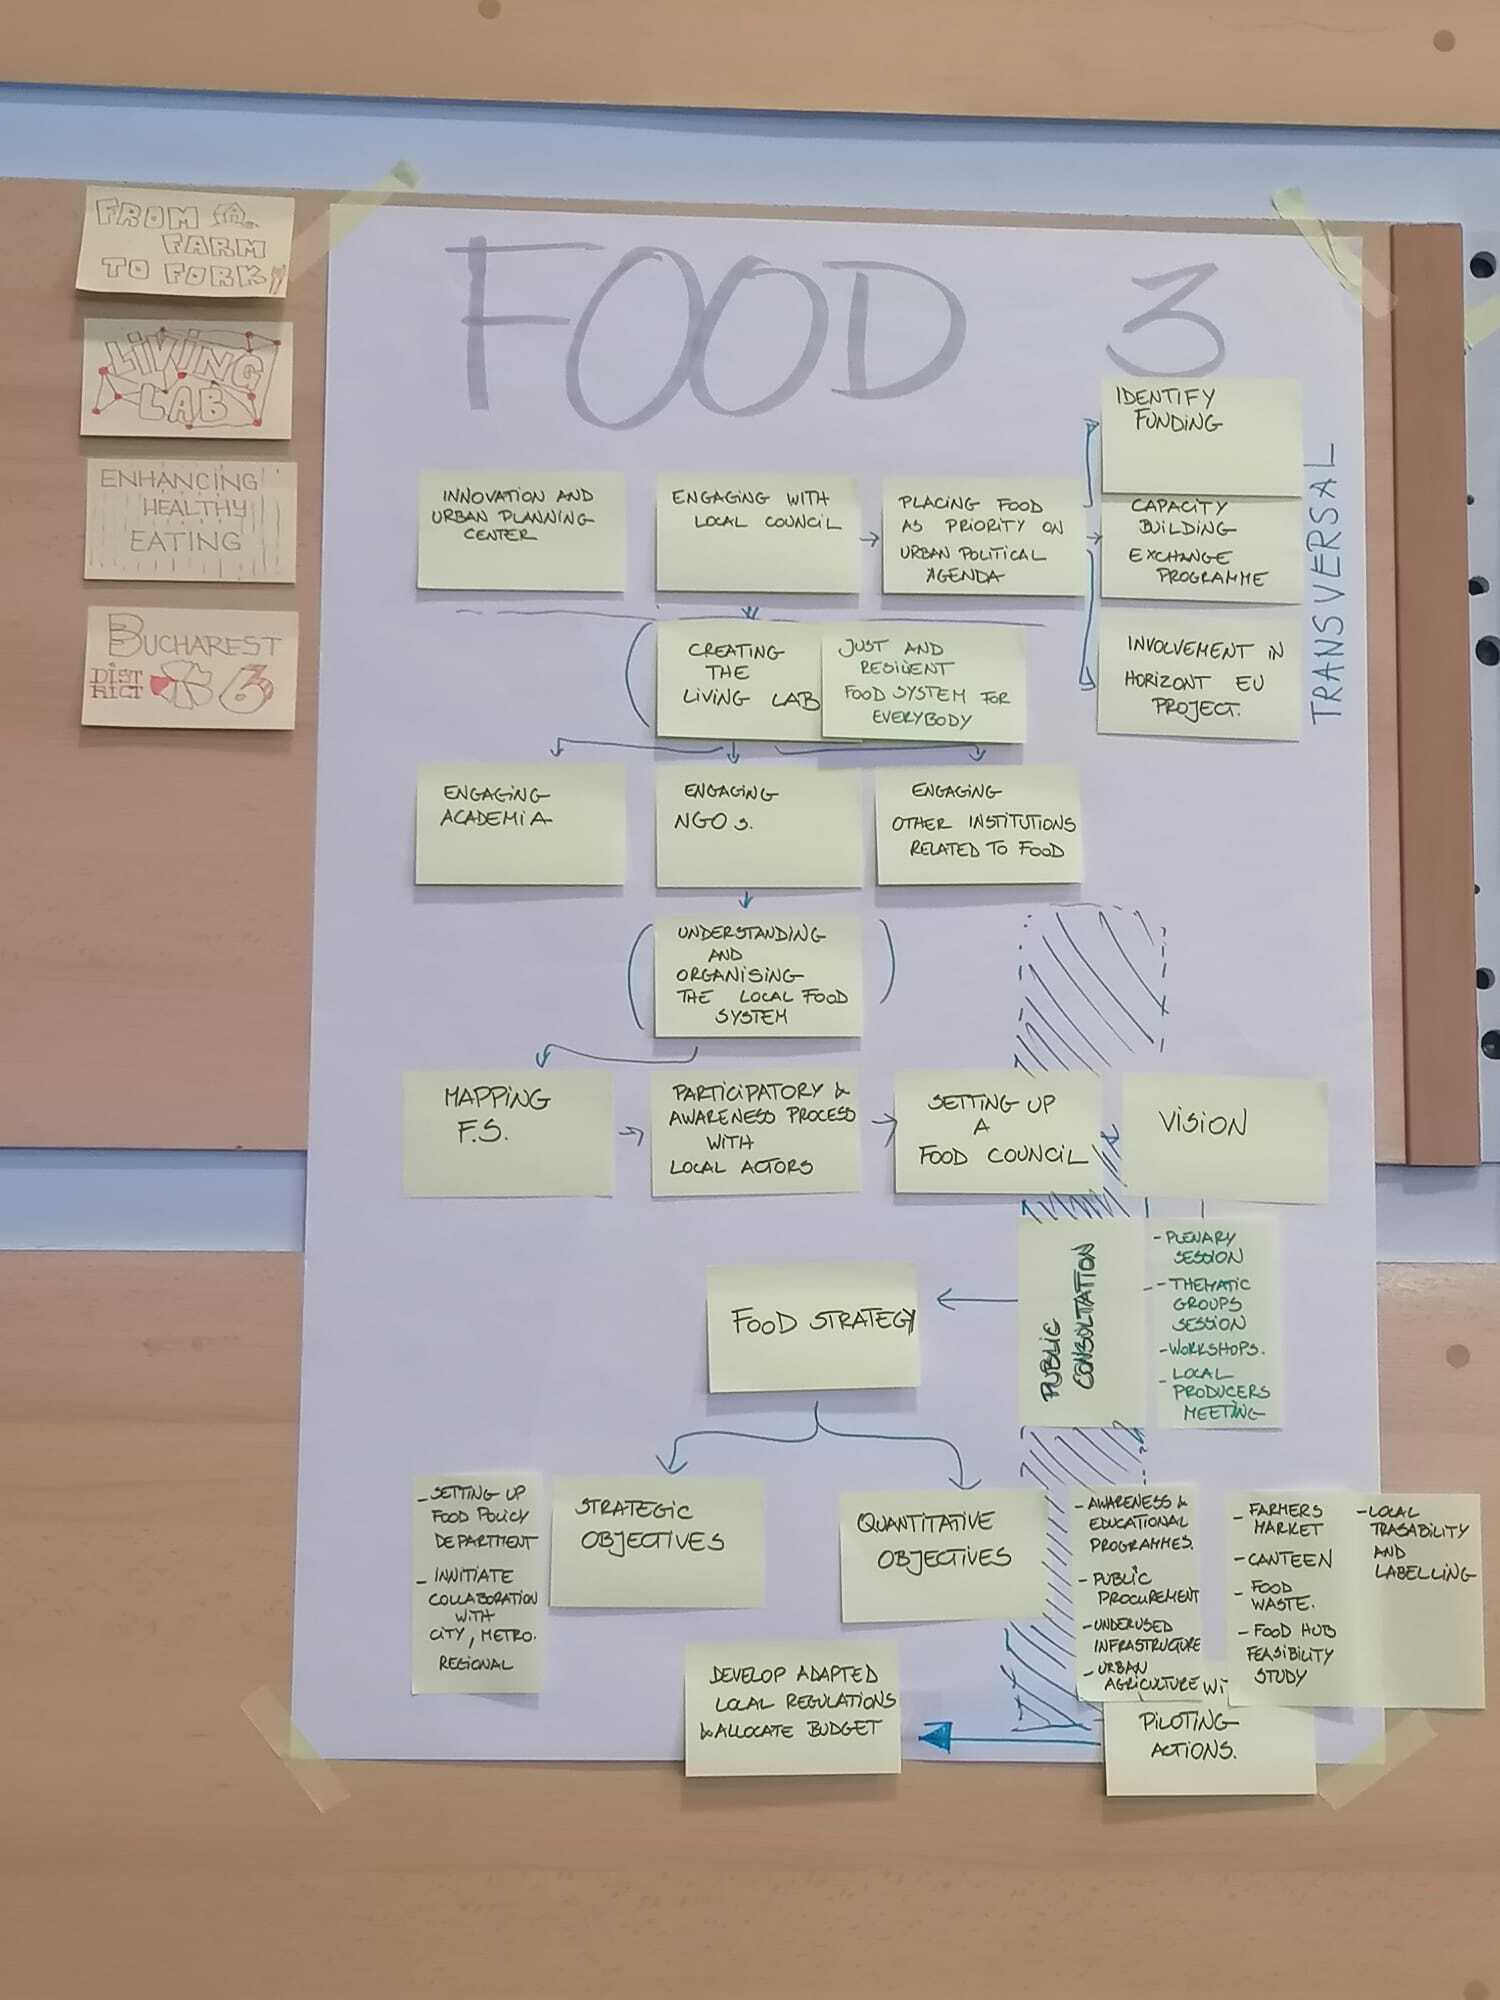 FROM
FARM
TO FORK
LIVING
LAB
ENHANCING
HEALTHY
EATING
BUCHAREST
DIST
RICT 6
FOOD 3
IDENTIFY
FUNDING
TRANSVERSAL
INNOVATION AND
URBAN PLANNING
CENTER
ENGAGING WITH
LOCAL COUNCIL
PLACING FOOD
AS PRIORITY ON
URBAN POLITICAL
AGENDA
CAPACITY
BUILDING
EXCHANGE
PROGRAMME
INVOLVEMENT IN
HORIZONT EU
PROJECT.
CREATING
THE
LIVING LAB
JUST AND
RESILIENT
FOOD SYSTEM FOR
EVERYBODY
ENGAGING
ACADEMIA
ENGAGING
NGO s.
ENGAGING
OTHER INSTITUTIONS
RELATED TO FOOD
UNDERSTANDING
AND
ORGANISING
THE LOCAL FOOD
SYSTEM
MAPPING
F.S.
PARTICIPATORY &
AWARENESS PROCESS
WITH
LOCAL ACTORS
SETTING UP
A
FOOD COUNCIL
VISION
PUBLIC
CONSULTATION
- PLENARY
SESSION
- THEMATIC
GROUPS
SESSION
- WORKSHOPS.
- LOCAL
PRODUCERS
MEETING
FOOD STRATEGY
- SETTING UP
FOOD POLICY
DEPARTMENT
- INNITIATE
COLLABORATION
WITH
CITY, METRO.
REGIONAL
STRATEGIC
OBJECTIVES
QUANTITATIVE
OBJECTIVES
- AWARENESS &
EDUCATIONAL
PROGRAMMES.
- PUBLIC
PROCUREMENT
- UNDERUSED
INFRASTRUCTURE
- URBAN
AGRICULTURE
- FARMERS
MARKET
- CANTEEN
- FOOD
WASTE.
- FOOD HUB
FEASIBILITY
STUDY
- LOCAL
TRASABILITY
AND
LABELLING
DEVELOP ADAPTED
LOCAL REGULATIONS
& ALLOCATE BUDGET
PILOTING
ACTIONS.